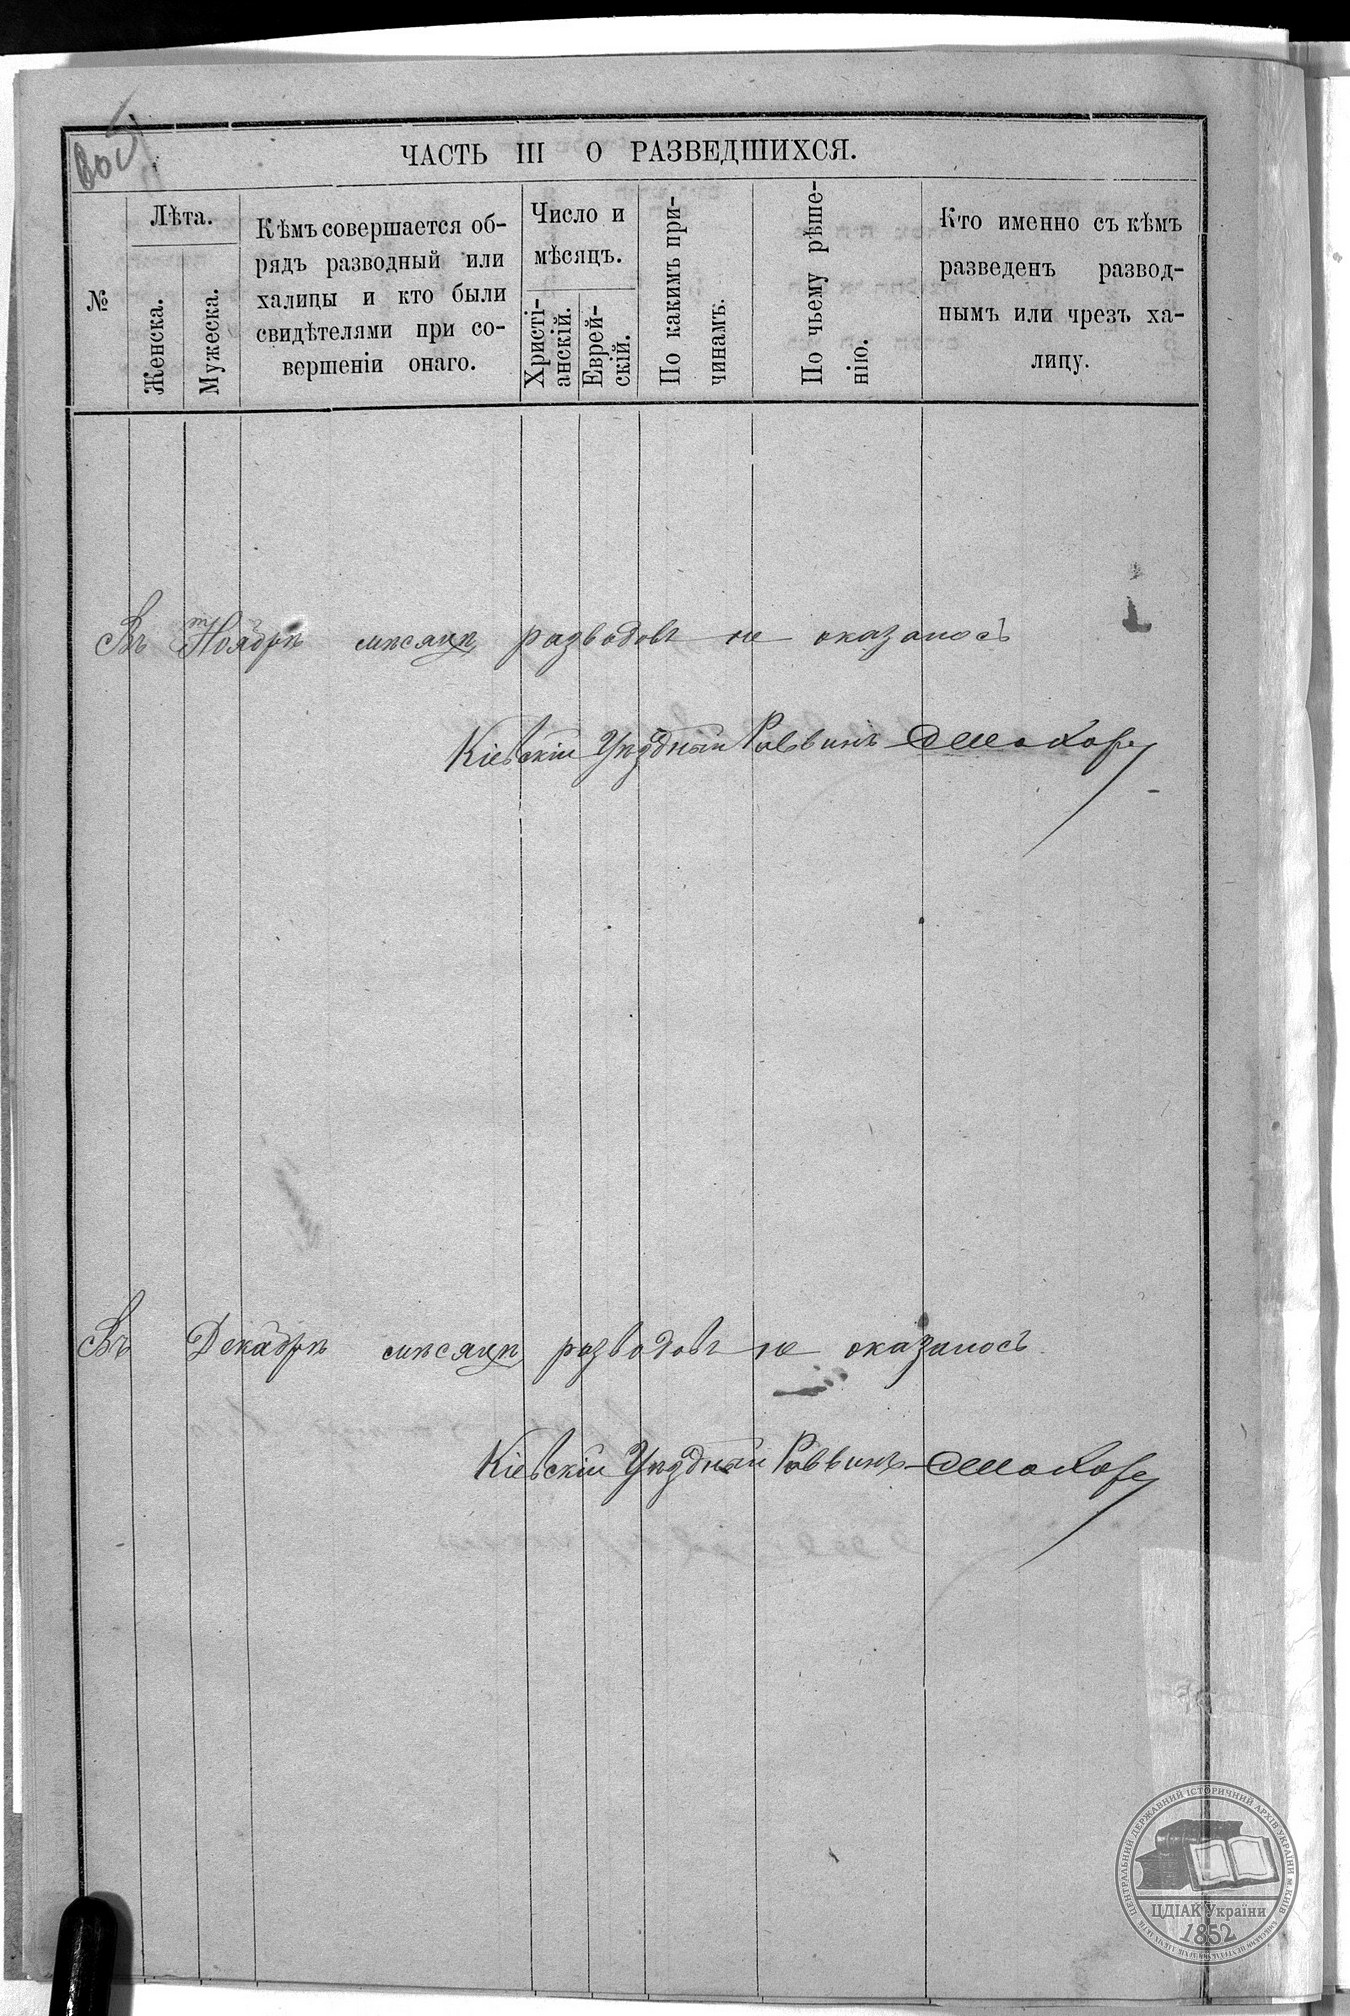 ЧАСТЬ III О РАЗВЕДШИХСЯ.
№
Лѣта.
Женска.
Мужеска.
Кѣмъ совершается об-
рядъ разводный или
халицы и кто были
свидѣтелями при со-
вершеніи онаго.
Число и
мѣсяцъ.
Христі-
анскій.
Еврей-
скій.
По какимъ при-
чинамъ.
По чьему рѣше-
нію.
Кто именно съ кѣмъ
разведенъ развод-
нымъ или чрезъ ха-
лицу.
Въ Ноябрѣ мѣсяцѣ разводовъ не оказалось
Кіевскій Уѣздный Раввинъ
Въ Декабрѣ мѣсяцѣ разводовъ не оказалось.
Кіевскій Уѣздный Раввинъ
ЦЕНТРАЛЬНИЙ ДЕРЖАВНИЙ ІСТОРИЧНИЙ АРХІВ УКРАЇНИ м. КИЇВ
ЦДІАК України
1852